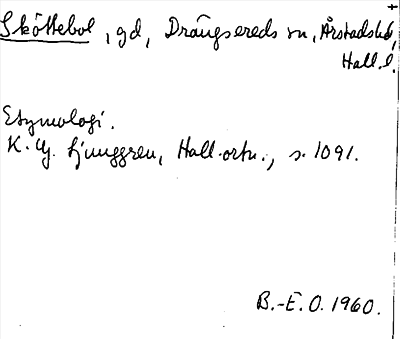 Sköttebol, gd, Drängsereds sn, Årstads hd,
Hall. l.
Etymologi.
K. G. Ljunggren, Hall. ortn., s. 1091.
B.-E. O. 1960.